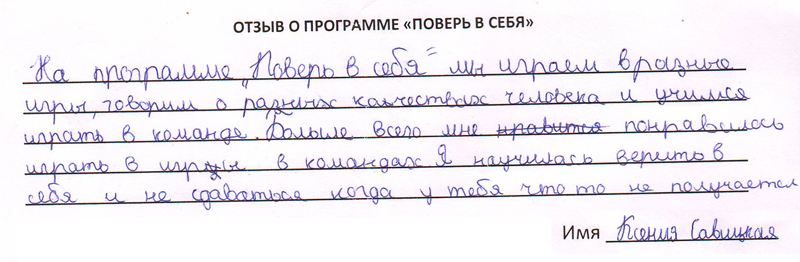 ОТЗЫВ О ПРОГРАММЕ «ПОВЕРЬ В СЕБЯ»
На программе „Поверь в себя" мы играем в разные
игры, говорим о разных качествах человека и учимся
играть в команде. Больше всего мне нравится понравилось
играть в игры в командах Я научилась верить в
себя и не сдаваться когда у тебя что то не получается
Имя Ксения Савицкая